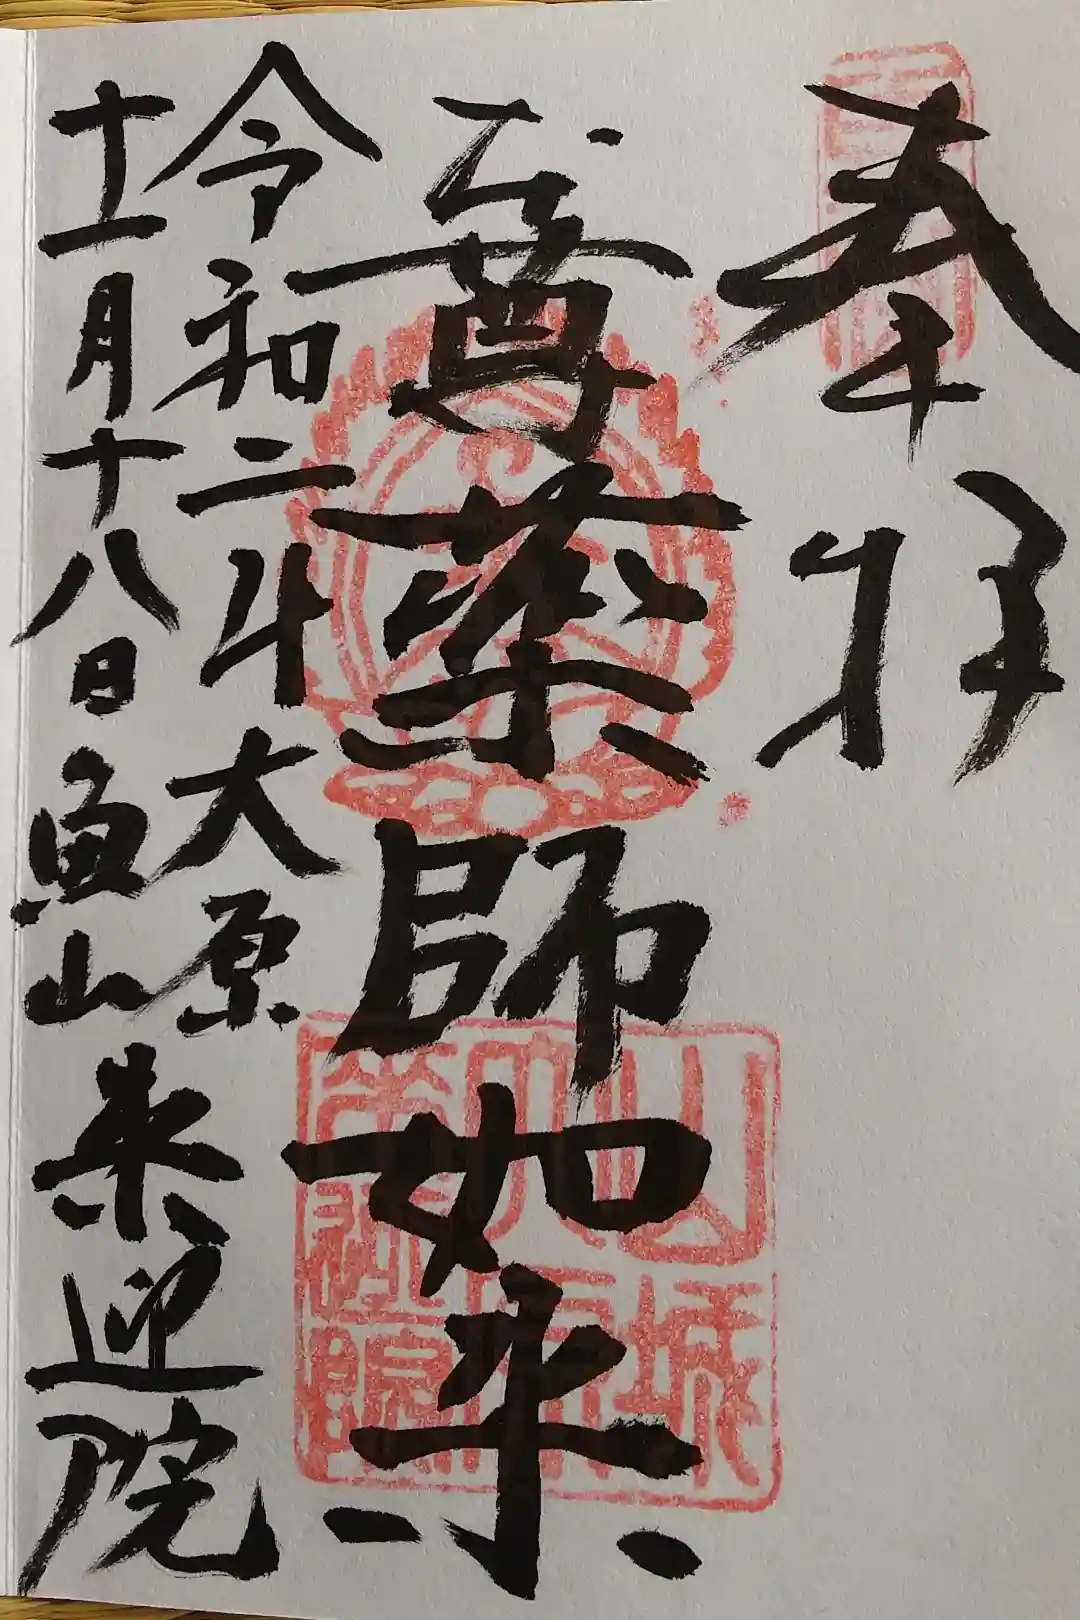 奉拝
薬師如来
令和二年 大原
十一月十八日 魚山
来迎院
山城
大原
來迎院